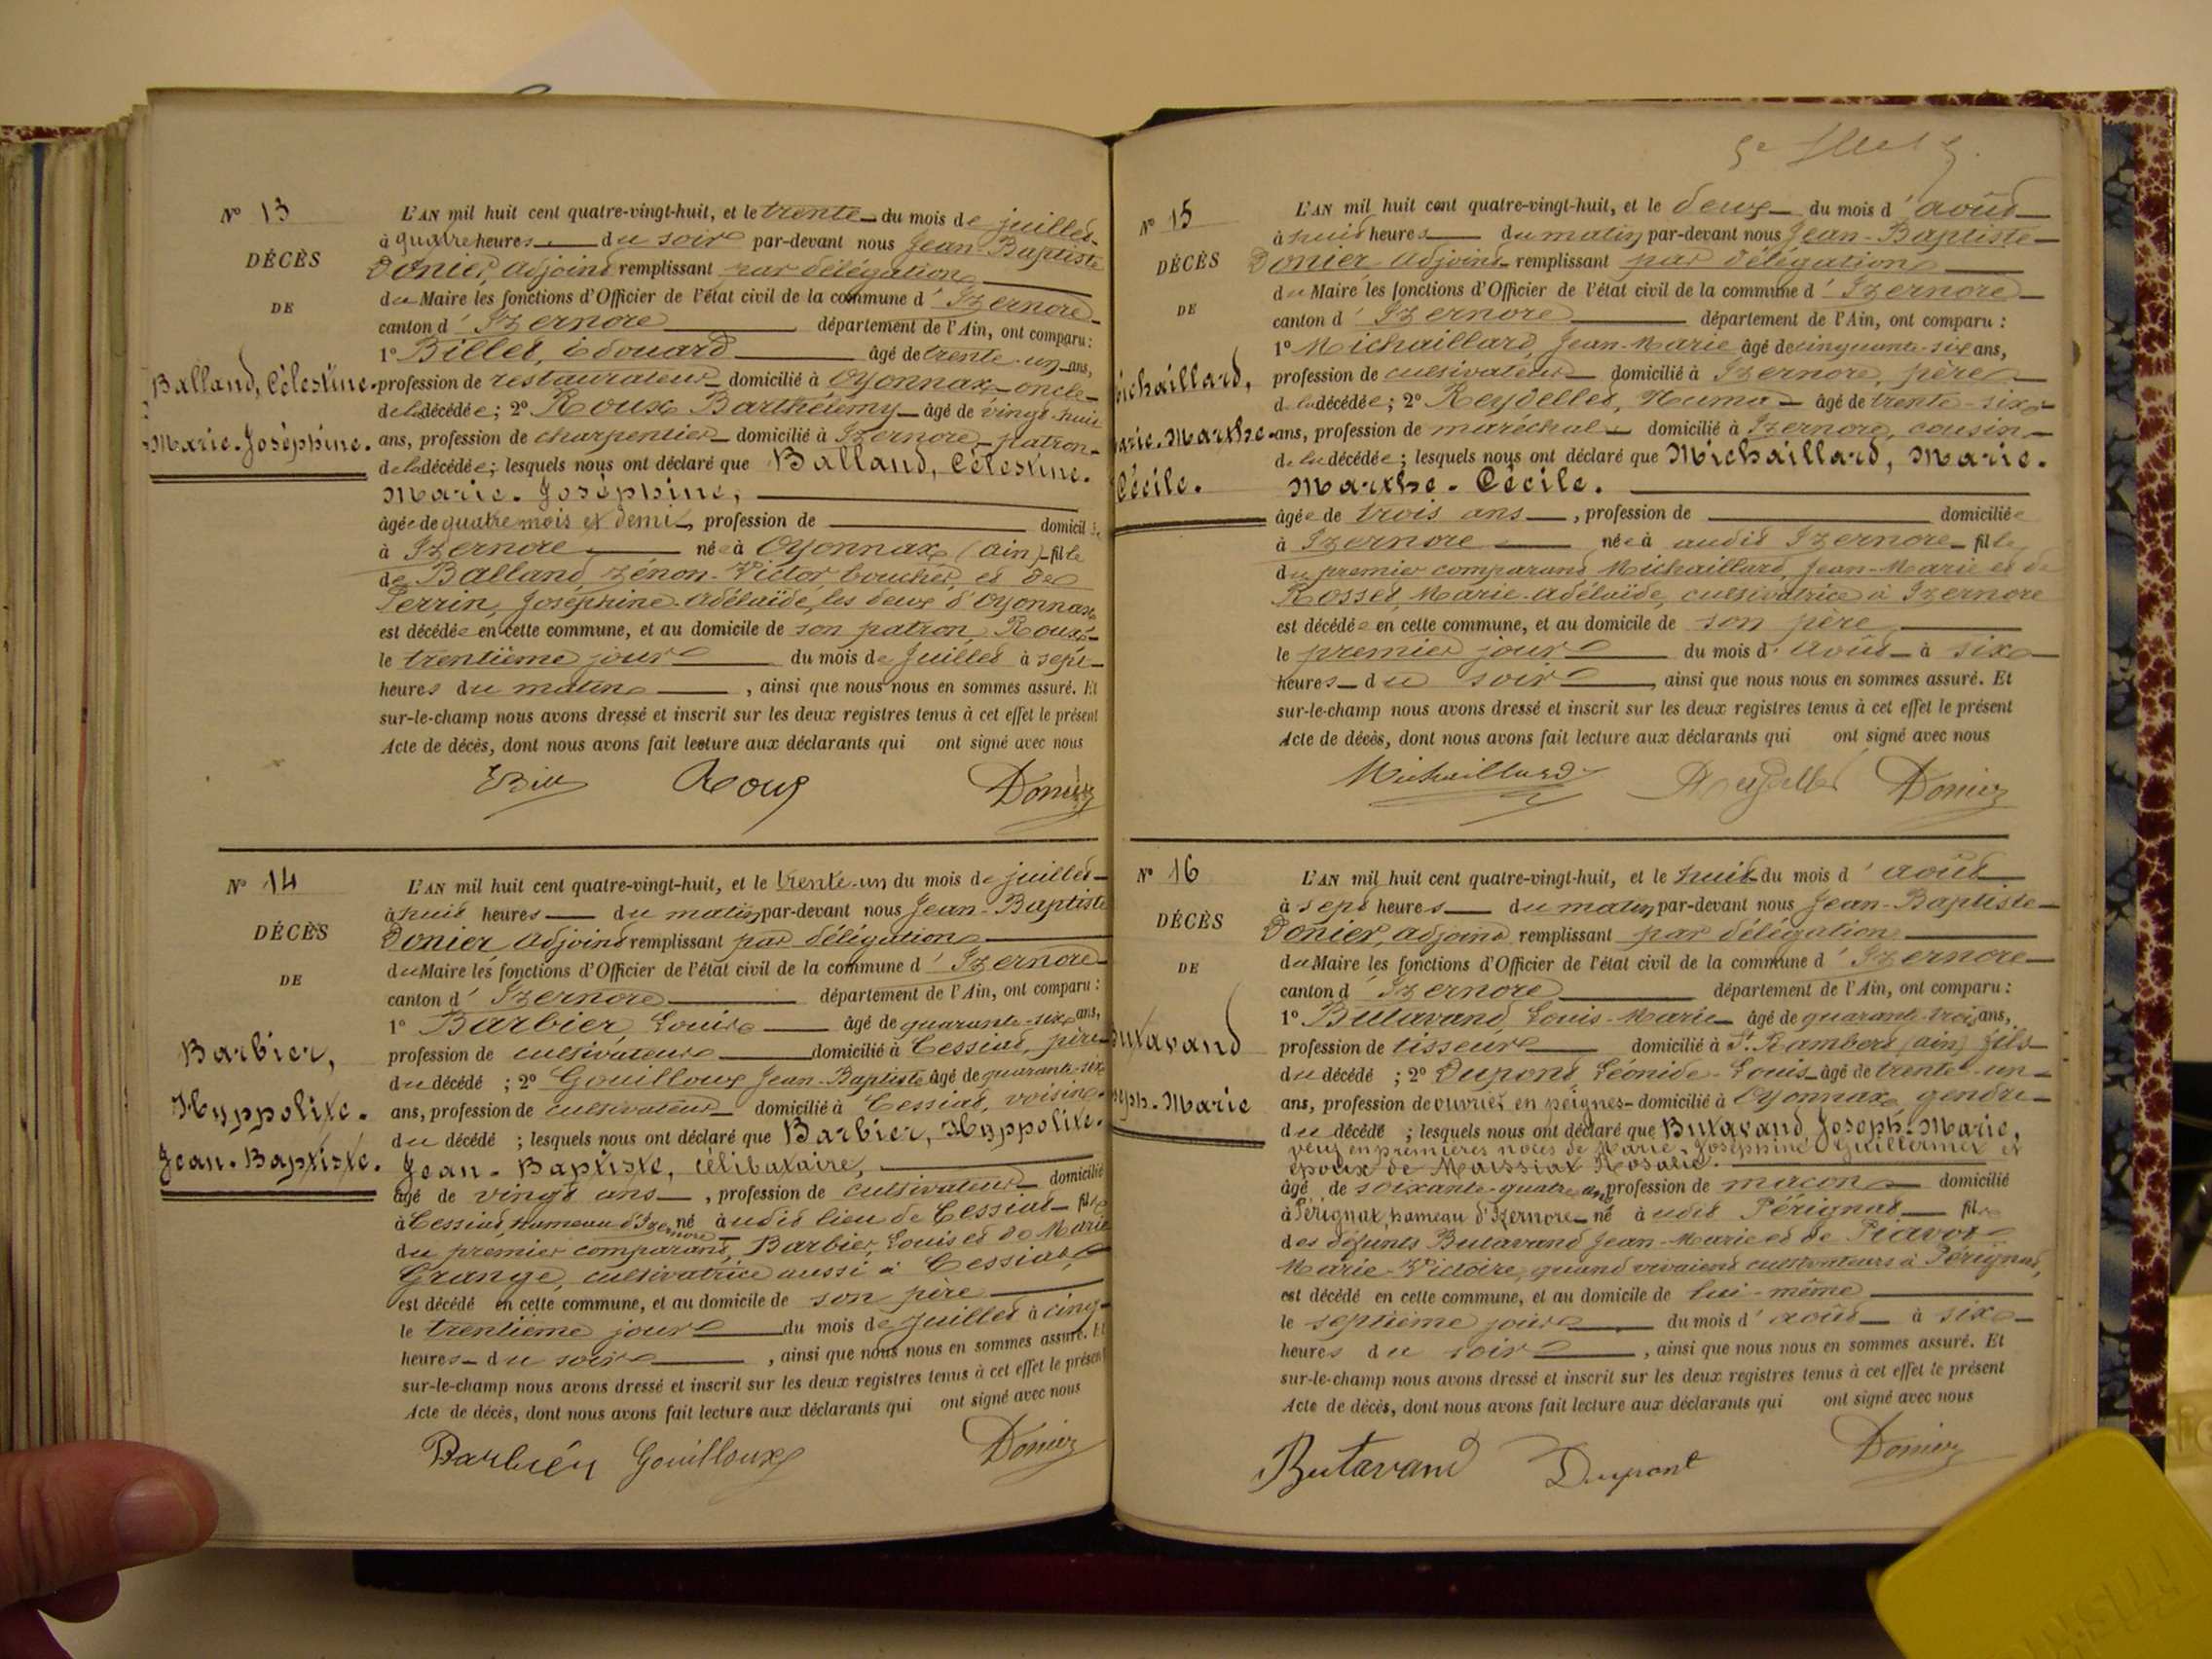 N° 13
DÉCÈS
DE
Balland, Célestine.
Marie-Joséphine.
L'AN mil huit cent quatre-vingt-huit, et le trente du mois de juillet
à quatre heures du soir par-devant nous Jean-Baptiste
Donier, adjoint remplissant par délégation
du Maire les fonctions d'Officier de l'état civil de la commune d'Izernore
canton d'Izernore département de l'Ain, ont comparu :
1° Billet, Edouard âgé de trente-un ans,
profession de restaurateur domicilié à Oyonnax oncle
de la décédée ; 2° Roux Barthélemy âgé de vingt-huit
ans, profession de charpentier domicilié à Izernore, patron
de la décédée ; lesquels nous ont déclaré que Balland, Célestine.
Marie-Joséphine,
âgée de quatre mois et demi, profession de domicilié
à Izernore née à Oyonnax (ain) fille
de Balland, Zénon-Victor boucher, et de
Perrin, Joséphine-Adélaïde, les deux d'Oyonnax
est décédée en cette commune, et au domicile de son patron, Roux
le trentième jour du mois de juillet à sept
heures du matin, ainsi que nous nous en sommes assuré. Et
sur-le-champ nous avons dressé et inscrit sur les deux registres tenus à cet effet le présent
Acte de décès, dont nous avons fait lecture aux déclarants qui ont signé avec nous
Roux Donier
N° 14
DÉCÈS
DE
Barbier,
Hyppolite.
Jean-Baptiste.
L'AN mil huit cent quatre-vingt-huit, et le trente-un du mois de juillet
à huit heures du matin par-devant nous Jean-Baptiste
Donier adjoint remplissant par délégation
du Maire les fonctions d'Officier de l'état civil de la commune d'Izernore
canton d'Izernore département de l'Ain, ont comparu :
1° Barbier, Louis âgé de quarante-six ans,
profession de cultivateur domicilié à Cessiat, père
du décédé ; 2° Gouilloux Jean-Baptiste âgé de quarante-six
ans, profession de cultivateur domicilié à Cessiat, voisin
du décédé ; lesquels nous ont déclaré que Barbier, Hyppolite.
Jean-Baptiste, célibataire,
âgé de vingt ans, profession de cultivateur domicilié
à Cessiat, hameau d'Izernore né audit lieu de Cessiat fils
du premier comparant, Barbier, Louis et de Marie
Grange, cultivatrice aussi à Cessiat,
est décédé en cette commune, et au domicile de son père
le trentième jour du mois de juillet à cinq
heures du soir, ainsi que nous nous en sommes assuré. Et
sur-le-champ nous avons dressé et inscrit sur les deux registres tenus à cet effet le présent
Acte de décès, dont nous avons fait lecture aux déclarants qui ont signé avec nous
Barbier Gouilloux Donier
N° 15
DÉCÈS
DE
ichaillard,
arie-Marthe-
Cécile.
L'AN mil huit cent quatre-vingt-huit, et le deux du mois d'août
à huit heures du matin par-devant nous Jean-Baptiste
Donier adjoint remplissant par délégation
du Maire les fonctions d'Officier de l'état civil de la commune d'Izernore
canton d'Izernore département de l'Ain, ont comparu :
1° Michaillard, Jean-Marie âgé de cinquante-six ans,
profession de cultivateur domicilié à Izernore, père
de la décédée ; 2° Reydellet, Numa âgé de trente-six
ans, profession de maréchal domicilié à Izernore, cousin
de la décédée ; lesquels nous ont déclaré que Michaillard, Marie.
Marthe-Cécile.
âgée de trois ans, profession de domiciliée
à Izernore née à audit Izernore fille
du premier comparant Michaillard, Jean-Marie et de
Rosset, Marie-Adélaïde, cultivatrice à Izernore
est décédée en cette commune, et au domicile de son père
le premier jour du mois d'août à six
heures du soir, ainsi que nous nous en sommes assuré. Et
sur-le-champ nous avons dressé et inscrit sur les deux registres tenus à cet effet le présent
Acte de décès, dont nous avons fait lecture aux déclarants qui ont signé avec nous
Michaillard Reydellet Donier
N° 16
DÉCÈS
DE
utavand
seph-Marie
L'AN mil huit cent quatre-vingt-huit, et le huit du mois d'août
à sept heures du matin par-devant nous Jean-Baptiste
Donier, adjoint remplissant par délégation
du Maire les fonctions d'Officier de l'état civil de la commune d'Izernore
canton d'Izernore département de l'Ain, ont comparu :
1° Butavand, Louis-Marie âgé de quarante-trois ans,
profession de tisseur domicilié à St Rambert (ain) fils
du décédé ; 2° Dupont, Léonide-Louis âgé de trente-un
ans, profession de ouvrier en peignes domicilié à Oyonnax gendre
du décédé ; lesquels nous ont déclaré que Butavand Joseph-Marie,
veuf en premières noces de Marie-Joséphine Guillermet et
époux de Maissiat Rosalie.
âgé de soixante-quatre ans profession de maçon domicilié
à Pérignat, hameau d'Izernore né audit Pérignat fils
des défunts Butavand Jean-Marie et de
Marie-Victoire, quand vivaient cultivateurs à Pérignat,
est décédé en cette commune, et au domicile de lui-même
le septième jour du mois d'août à six
heures du soir, ainsi que nous nous en sommes assuré. Et
sur-le-champ nous avons dressé et inscrit sur les deux registres tenus à cet effet le présent
Acte de décès, dont nous avons fait lecture aux déclarants qui ont signé avec nous
Butavand Dupont Donier